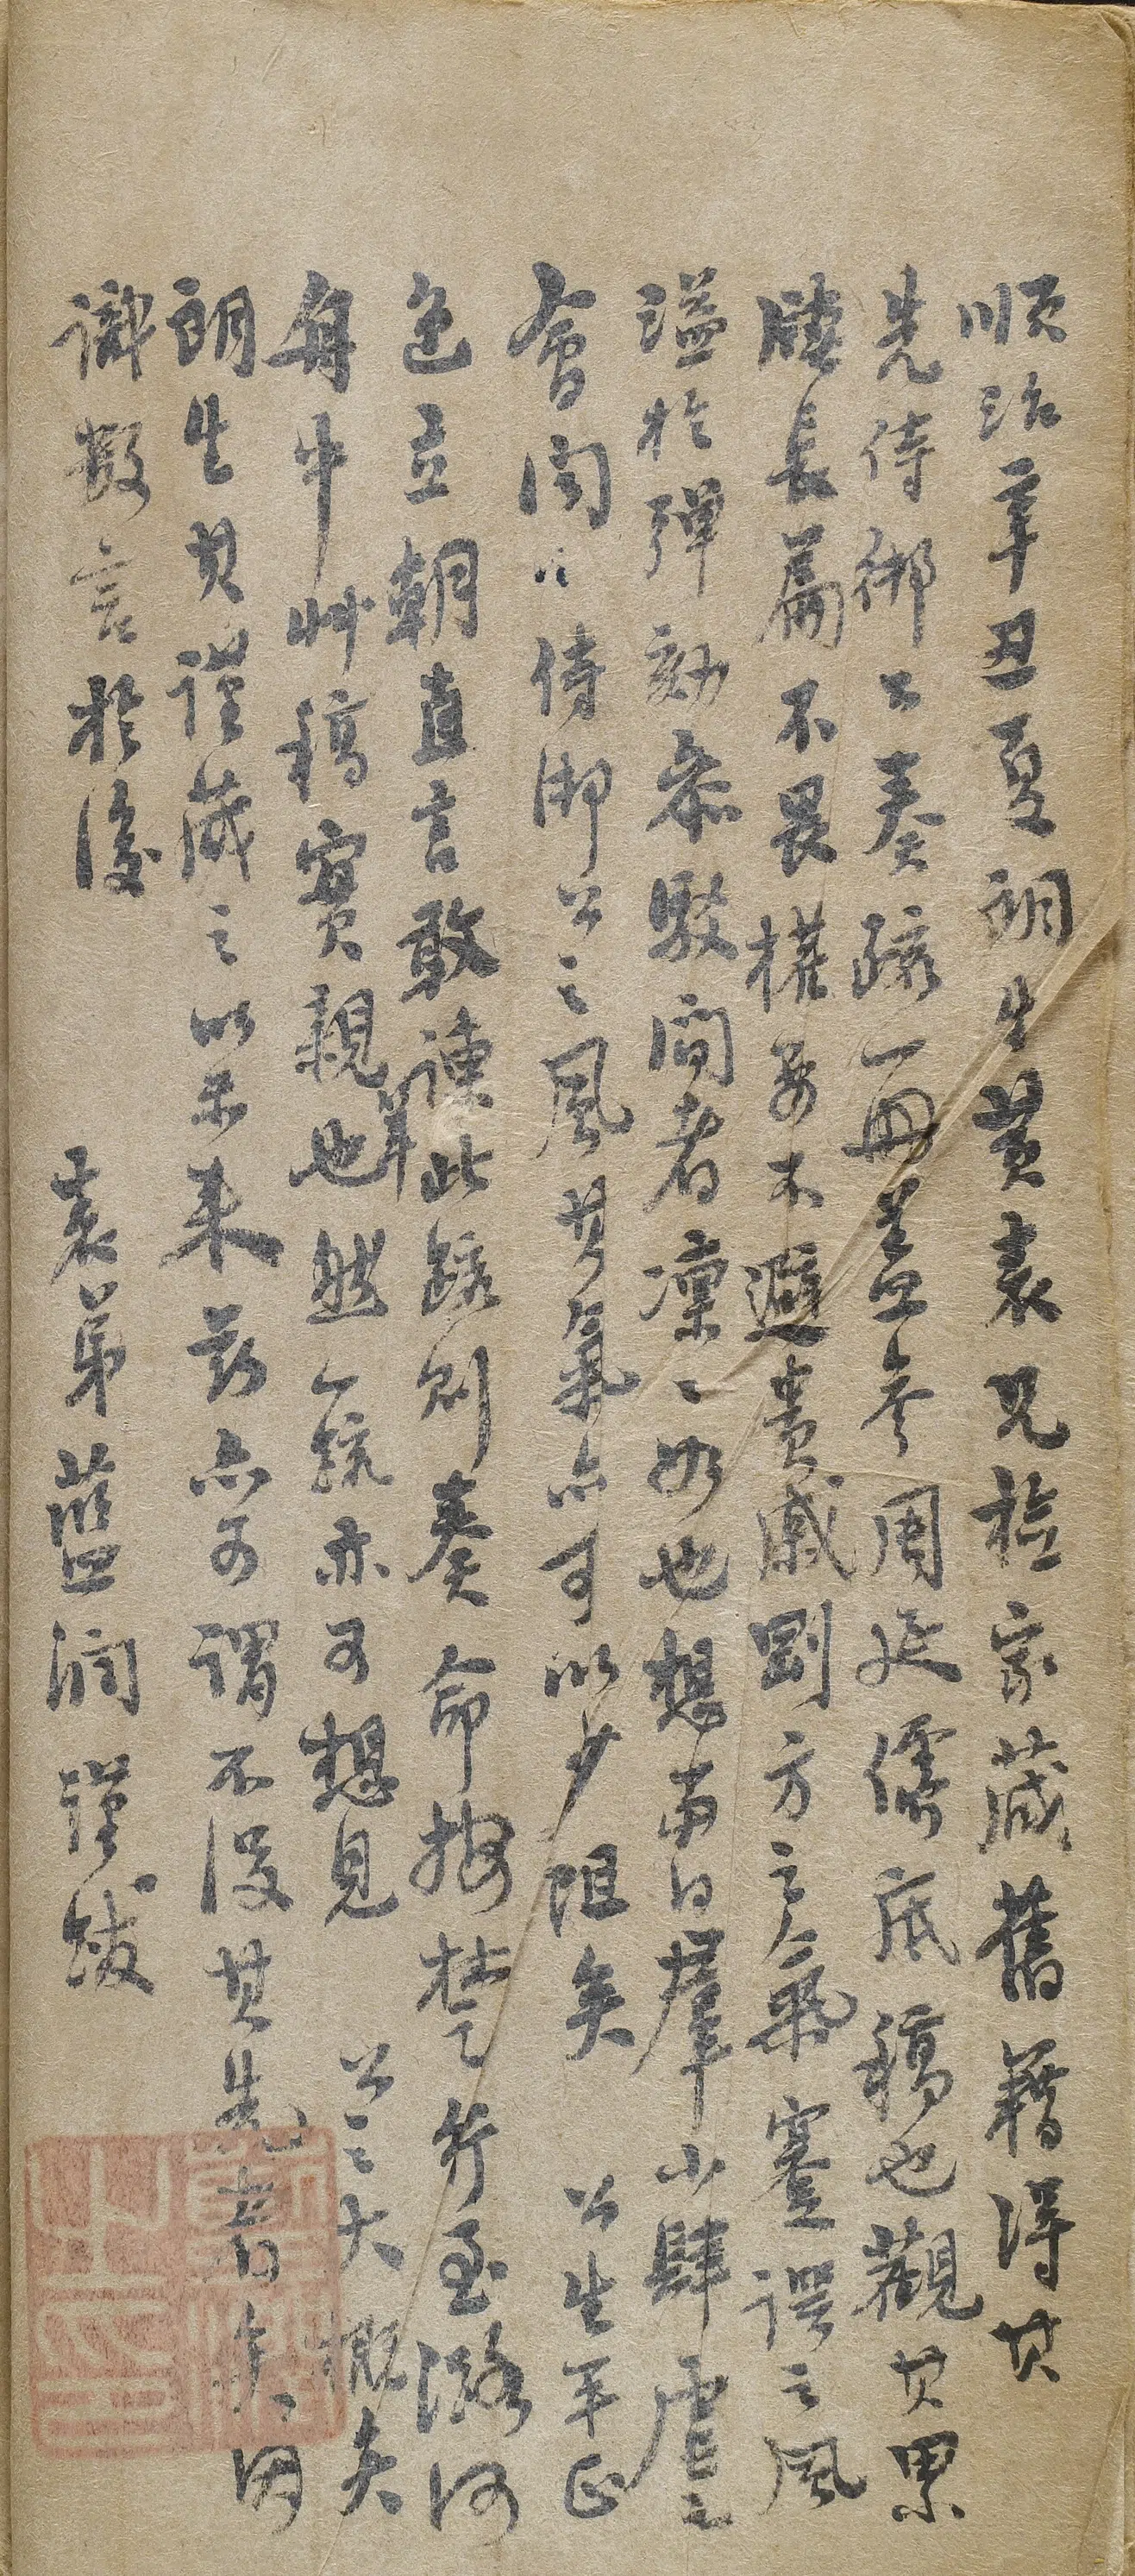 順治辛丑夏朗生黄表兄檢家藏舊籍得其
先侍御公奏疏一冊蓋參周延儒底稿也觀其累
牘長篇不畏權要不避貴戚剛方之氣蹇諤之風
溢於彈劾參駁間者凜〻如也想當日羣小肆虐之
會聞吾侍御公之風其氣亦可以少阻矣 公生平正
色立朝直言敢諫此疏則奏命按楚行至潞河
舟中艸稿實親筆也然一疏亦可想見 公之大概矣
朗生其謹藏之以示來茲亦可謂不沒其先者矣因
識數言於後 表弟藍潤謹跋